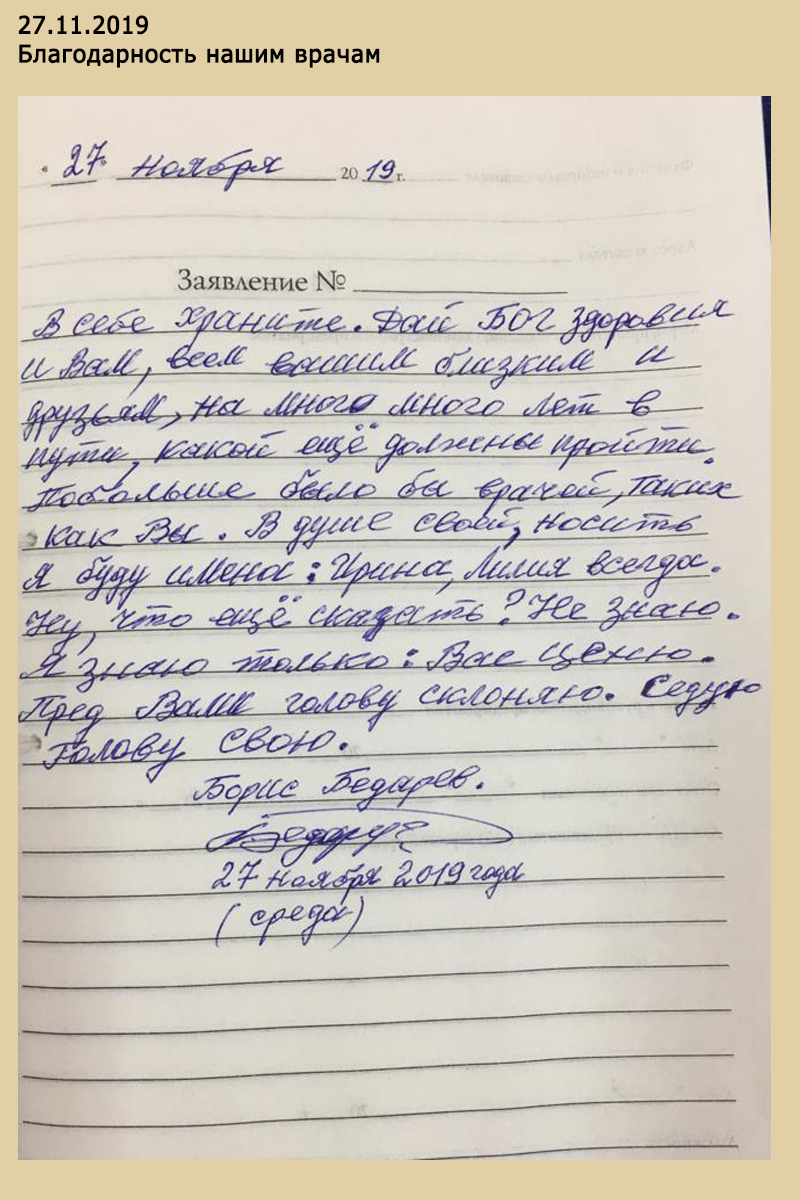 27.11.2019
Благодарность нашим врачам
"27" ноября 2019 г.
Заявление № ____
В себе храните. Дай БОГ здоровия
и Вам, всем вашим близким и
друзьям, на много много лет в
пути, какой ещё должены пройти.
Побольше было бы врачей, таких
как Вы. В душе своей, носить
Я буду имена: Ирина, Лилия всегда.
Ну, что ещё сказать? Не знаю.
Я знаю только: Вас ценю.
Пред Вами голову склоняю. Седую
голову свою.
Борис Бедарев.
27 ноября 2019 года
(среда)